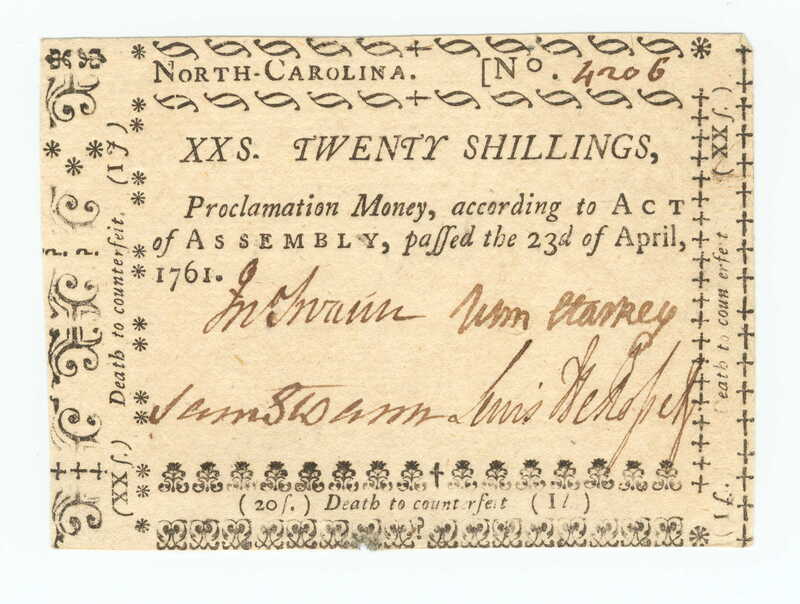 NORTH-CAROLINA. [No. 4206
XXS. TWENTY SHILLINGS,
Proclamation Money, according to ACT
of ASSEMBLY, paſſed the 23d of April,
1761.
Jno Swann Wm Starkey
Sam Swann Lewis DeRosset
(20ſ.) Death to counterfeit (1l.)
(XXſ.) Death to counterfeit, (1l.)
(1l.) Death to counterfeit (XXſ.)